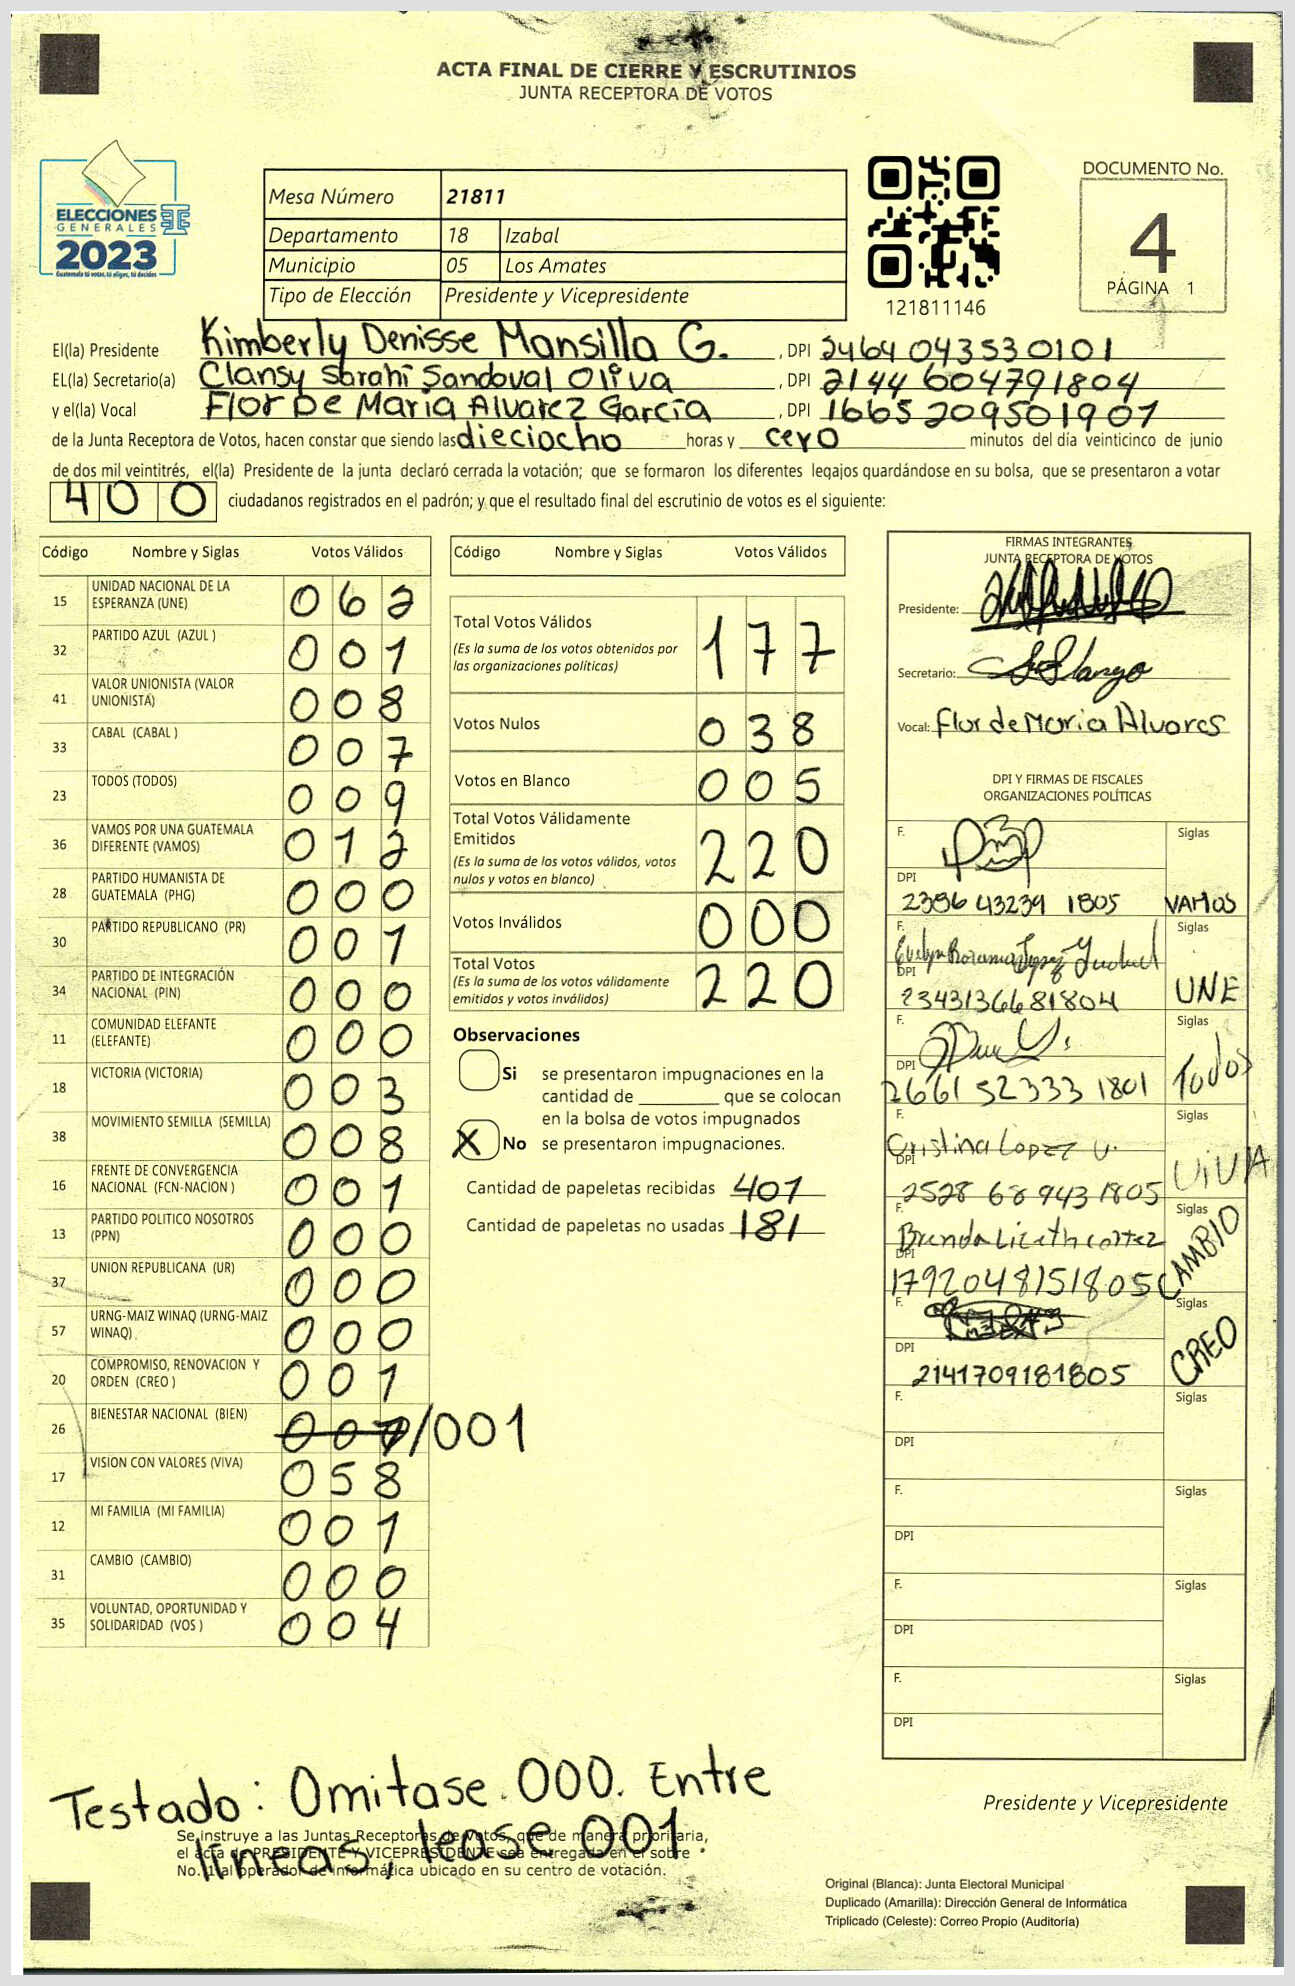 ACTA FINAL DE CIERRE Y ESCRUTINIOS
JUNTA RECEPTORA DE VOTOS
ELECCIONES
GENERALES
2023
Guatemala tú votas, tú eliges, tú decides
Mesa Número 21811
Departamento 18 Izabal
Municipio 05 Los Amates
Tipo de Elección Presidente y Vicepresidente
121811146
DOCUMENTO No.
4
PÁGINA 1
El(la) Presidente Kimberly Denisse Mansilla G. , DPI 2464043530101
EL(la) Secretario(a) Clansy Sarahi Sandoval Oliva , DPI 2144604791804
y el(la) Vocal Flor De María Alvarez García , DPI 1665209501907
de la Junta Receptora de Votos, hacen constar que siendo las dieciocho horas y cero minutos del día veinticinco de junio
de dos mil veintitrés, el(la) Presidente de la junta declaró cerrada la votación; que se formaron los diferentes legajos quardándose en su bolsa, que se presentaron a votar
400 ciudadanos registrados en el padrón; y que el resultado final del escrutinio de votos es el siguiente:
Código Nombre y Siglas Votos Válidos
15 UNIDAD NACIONAL DE LA ESPERANZA (UNE) 062
32 PARTIDO AZUL (AZUL ) 001
41 VALOR UNIONISTA (VALOR UNIONISTA) 008
33 CABAL (CABAL ) 007
23 TODOS (TODOS) 009
36 VAMOS POR UNA GUATEMALA DIFERENTE (VAMOS) 012
28 PARTIDO HUMANISTA DE GUATEMALA (PHG) 000
30 PARTIDO REPUBLICANO (PR) 001
34 PARTIDO DE INTEGRACIÓN NACIONAL (PIN) 000
11 COMUNIDAD ELEFANTE (ELEFANTE) 000
18 VICTORIA (VICTORIA) 003
38 MOVIMIENTO SEMILLA (SEMILLA) 008
16 FRENTE DE CONVERGENCIA NACIONAL (FCN-NACION ) 001
13 PARTIDO POLITICO NOSOTROS (PPN) 000
37 UNION REPUBLICANA (UR) 000
57 URNG-MAIZ WINAQ (URNG-MAIZ WINAQ) 000
20 COMPROMISO, RENOVACION Y ORDEN (CREO ) 001
26 BIENESTAR NACIONAL (BIEN) /001
17 VISION CON VALORES (VIVA) 058
12 MI FAMILIA (MI FAMILIA) 001
31 CAMBIO (CAMBIO) 000
35 VOLUNTAD, OPORTUNIDAD Y SOLIDARIDAD (VOS ) 004
Código Nombre y Siglas Votos Válidos
Total Votos Válidos 177
(Es la suma de los votos obtenidos por
las organizaciones políticas)
Votos Nulos 038
Votos en Blanco 005
Total Votos Válidamente
Emitidos 220
(Es la suma de los votos válidos, votos
nulos y votos en blanco)
Votos Inválidos 000
Total Votos 220
(Es la suma de los votos válidamente
emitidos y votos inválidos)
Observaciones
Si se presentaron impugnaciones en la
cantidad de ________ que se colocan
en la bolsa de votos impugnados
X No se presentaron impugnaciones.
Cantidad de papeletas recibidas 401
Cantidad de papeletas no usadas 181
FIRMAS INTEGRANTES
JUNTA RECEPTORA DE VOTOS
Presidente:
Secretario:
Vocal: Flor de Maria Alvares
DPI Y FIRMAS DE FISCALES
ORGANIZACIONES POLÍTICAS
F. Siglas
DPI
2386 43239 1805 VAMOS
F. Siglas
DPI
2343136681804 UNE
F. Siglas
DPI
2661 52333 1801 TODOS
F. Siglas
Cristina Lopez V.
DPI
2528 68 943 1805 ViVA
F. Siglas
Brenda Lizeth cortez
DPI
1792048151805 CAMBIO
F. Siglas
DPI
2141709181805 CREO
F. Siglas
DPI
F. Siglas
DPI
F. Siglas
DPI
F. Siglas
DPI
Testado: Omitase 000. Entre
líneas, lease 001
Se instruye a las Juntas Receptoras de Votos, que de manera prioritaria,
el acta de PRESIDENTE Y VICEPRESIDENTE sea entregada en el sobre
No. 1 al operador de informática ubicado en su centro de votación.
Presidente y Vicepresidente
Original (Blanca): Junta Electoral Municipal
Duplicado (Amarilla): Dirección General de Informática
Triplicado (Celeste): Correo Propio (Auditoría)